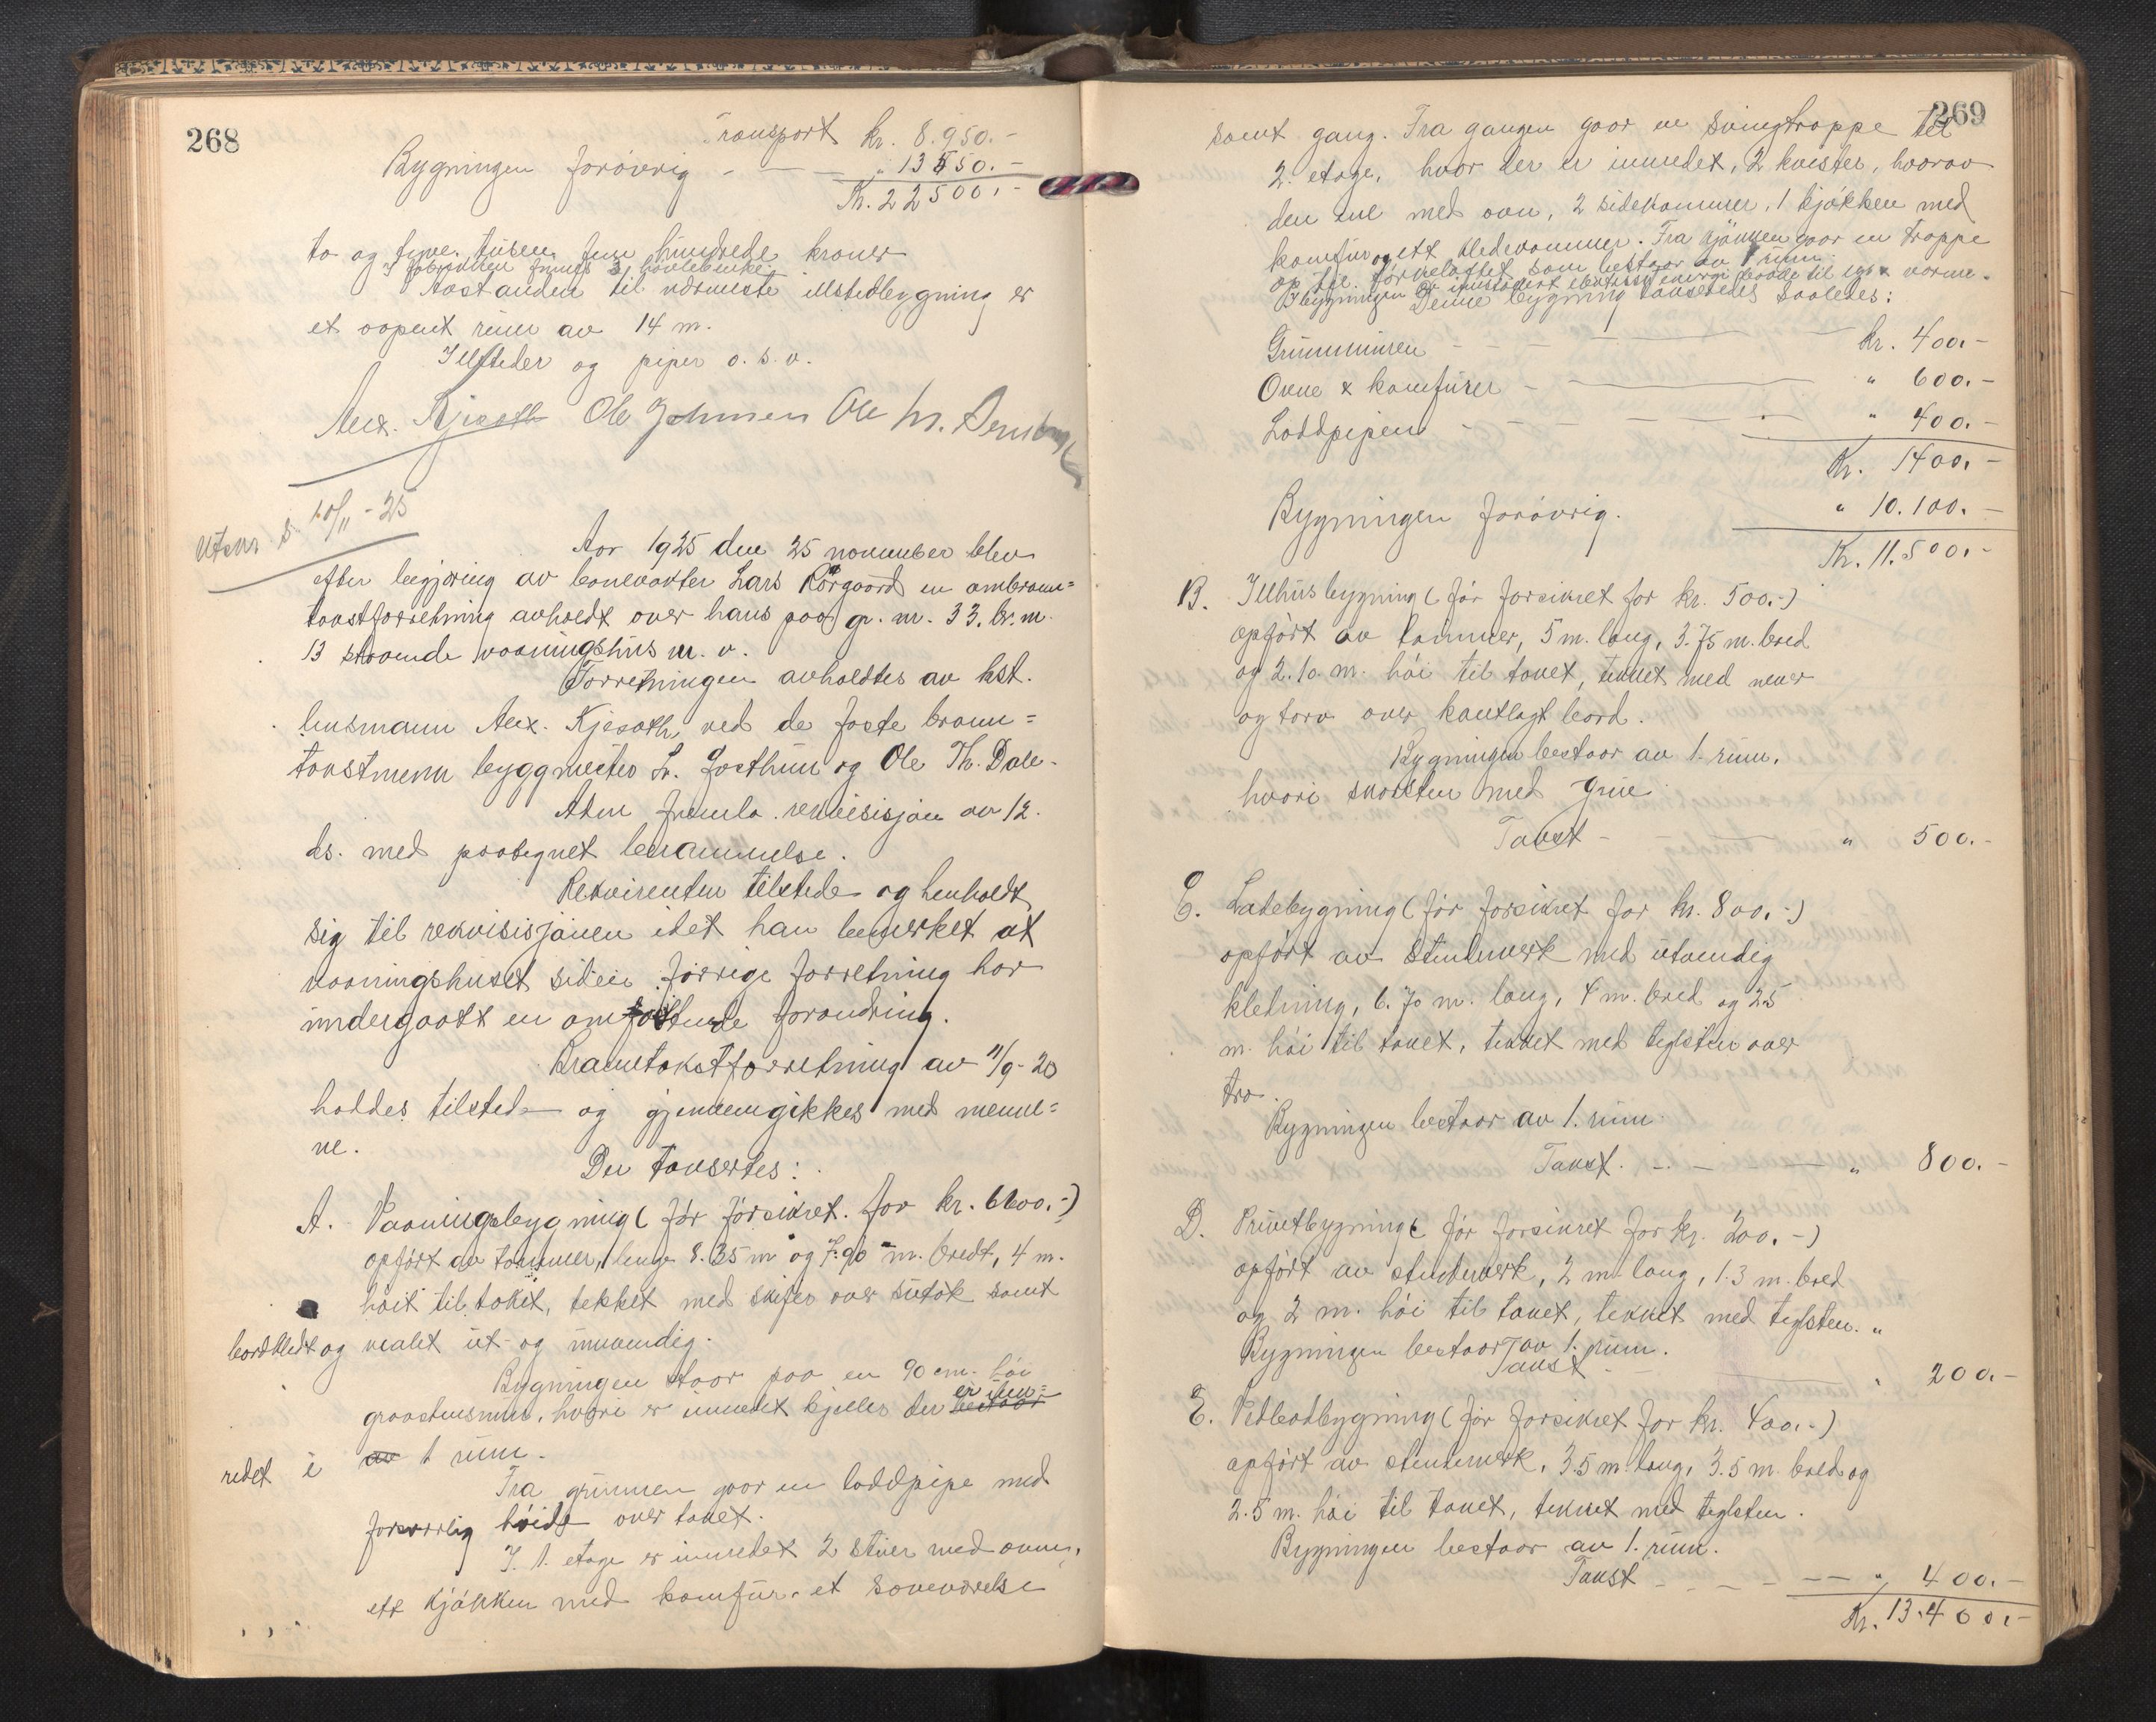 268
Transport kr. 8.950.-
Bygningen forøvrig - — „ 13550.-
Kr. 22500.-
to og tyve tusen fem hundrede kroner
I fabrikken finnes 3 høvlebenke.
Avstanden til nærmeste illstedbygning er
et aapent rum av 14 m.
Illsteder og piper o.s.v.
Alex. Kjesoth Ole Johnsen Ole M.
Utskr. s. 10/11 - 25
Aar 1925 den 25 november blev
efter begjæring av banevakter Lars Rørgaard en ombrann=
takstforretning avholdt over hans paa gr. nr. 33. br. nr.
13 staaende vaaningshus m. v.
Forretningen avholdtes av kst.
lensmann Alex. Kjesoth ved de faste brann=
takstmenn byggmester Lr. Josthun og Ole Th. Dale.
Adm fremla rekvisisjon av 12.
ds. med paategnet berammelse.
Rekvirenten tilstede og henholdt
sig til rekvisisjonen idet han bemerket at
vaaningshuset siden forrige forretning har
undergaatt en omfattende forandring.
Branntakstforretning av 11/9-20
haddes tilstede og gjennemgikkes med menne=
ne.
Der taksertes:
A. Vaaningsbygning (før forsikret for kr. 6600.-)
opført av tømmer, lenge 8.35 m og 7.90 m. bredt, 4 m.
høit til taket, tekket med skifer over sutak samt
bordkledt og malet ut- og innvendig.
Bygningen staar paa en 90 cm. høi
graastensmur, hvori er innredet kjeller der bestaar er inn=
redet i av 1 rum.
Fra grunnen gaar en loddpipe med
forsvarlig høide over taket.
I 1. etage er innredet 2 stuer med ovne,
ett kjøkken med komfur, et soveværelse
269
samt gang. Fra gangen gaar en svingtrappe til
2. etage, hvor der er innredet, 2 kvister, hvorav
den ene med ovn, 2 sidekammer, 1 kjøkken med
komfur og ett kledekammer. Fra kjøkken gaar en trappe
op til tørkeloftet som bestaar av 1 rum.
I bygningen er innstallert elektrisk energi baade til lys & varme.
Denne bygning taksertes saaledes:
Grunnmuren - - - — kr. 400.-
Ovne & komfurer - — „ 600.-
Loddpipen - - - — „ 400.-
Kr. 1400.-
Bygningen forøvrig. „ 10.100.-
Kr. 11.500.-
B. Illhusbygning (før forsikret for kr. 500.-)
opført av tømmer, 5 m. lang, 3.75 m. bred
og 2.10 m. høi til taket, tekket med never
og torv over kantlagt bord.
Bygningen bestaar av 1 rum,
hvori skorsten med grue
Takst - — „ 500.-
C. Ladebygning (før forsikret for kr. 800.-)
opført av stenderverk med utvendig
kledning, 6.70 m. lang, 4 m. bred og 2.5
m. høi til taket, tekket med teglsten over
tro.
Bygningen bestaar av 1. rum
Takst. - — „ 800.-
D. Privetbygning (før forsikret for kr. 200.-)
opført av stenderverk, 2 m. lang, 1.3 m. bred
og 2 m. høi til taket, tekket med teglsten. „
Bygningen bestaar av 1. rum.
Takst - — „ 200.-
E. Vedbodbygning (før forsikret for kr. 400.-)
opført av stenderverk, 3.5 m. lang, 3.5 m. bred og
2.5 m. høi til taket, tekket med teglsten.
Bygningen bestaar av 1. rum.
Takst - - - — „ 400.-
Kr. 13.400.-